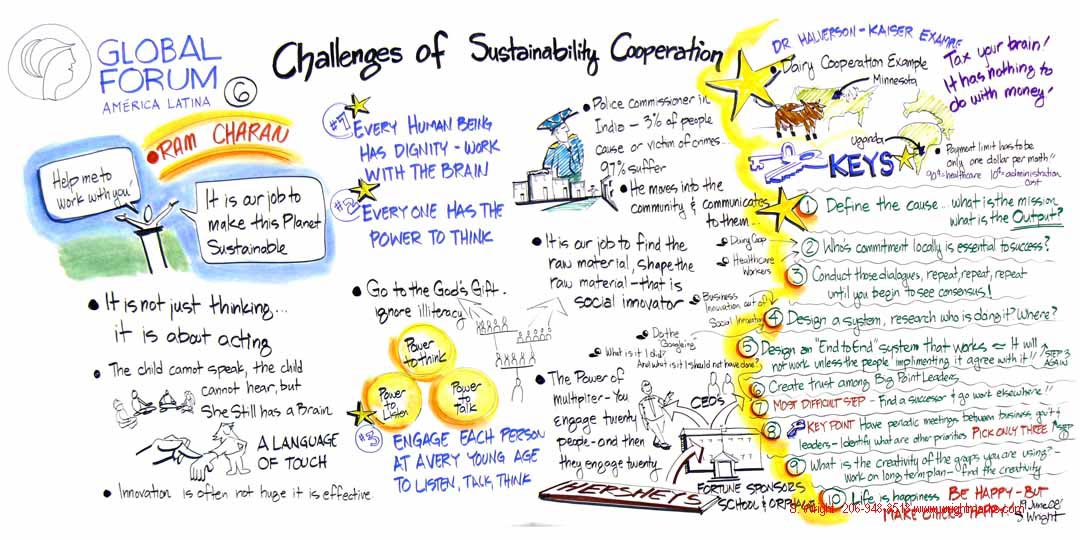 GLOBAL
FORUM
AMÉRICA LATINA
6
Challenges of Sustainability Cooperation
RAM CHARAN
Help me to
work with you
It is our job to
make this Planet
Sustainable
It is not just thinking...
it is about acting
The child cannot speak, the child
cannot hear, but
She Still has a Brain
A LANGUAGE
OF TOUCH
Innovation is often not huge it is effective
#1 EVERY HUMAN BEING
HAS DIGNITY - WORK
WITH THE BRAIN
#2 EVERYONE HAS THE
POWER TO THINK
Go to the God's Gift.
ignore illiteracy
Power
to think
Power
to Listen
Power
to Talk
#3 ENGAGE EACH PERSON
AT A VERY YOUNG AGE
TO LISTEN, TALK, THINK
Police commissioner in
India - 3% of people
cause or victim of crimes...
97% suffer
He moves into the
community & communicates
to them...
It is our job to find the
raw material, shape the
raw material - that is
social innovator
Dairy Coop
Healthcare
Workers
Business
Innovation out of
Social Innovation
Do the
"Googleing"
What is it I did?
And what is it I should not have done?
The Power of
multiplier - You
engage twenty
people - and then
they engage twenty
CEO's
HERSHEYS
FORTUNE SPONSORS
SCHOOL & ORPHANS
DR HALVERSON - KAISER EXAMPLE
Dairy Cooperation Example
Minnesota
Uganda
Tax your brain!
It has nothing to
do with money!
Payment limit has to be
only one dollar per month"
90% healthcare 10% administration
cost
KEYS
1 Define the cause... what is the mission
what is the Output?
2 Who's commitment locally is essential to success?
3 Conduct those dialogues, repeat, repeat, repeat
until you begin to see consensus!
4 Design a system, research who is doing it? Where?
5 Design an "End to End" system that works ~ It will
not work unless the people implimenting it agree with it!! STEP 3
AGAIN
6 Create trust among Big Point Leaders
7 MOST DIFFICULT STEP - Find a successor & go work elsewhere!!
8 KEY POINT Have periodic meetings between business, gov't &
leaders - Identify what are other priorities PICK ONLY THREE
9 What is the creativity of the groups you are using? -
work on long term plan - find the creativity
10 Life is happiness BE HAPPY - BUT
MAKE OTHERS HAPPY
9 June 08
S Wright